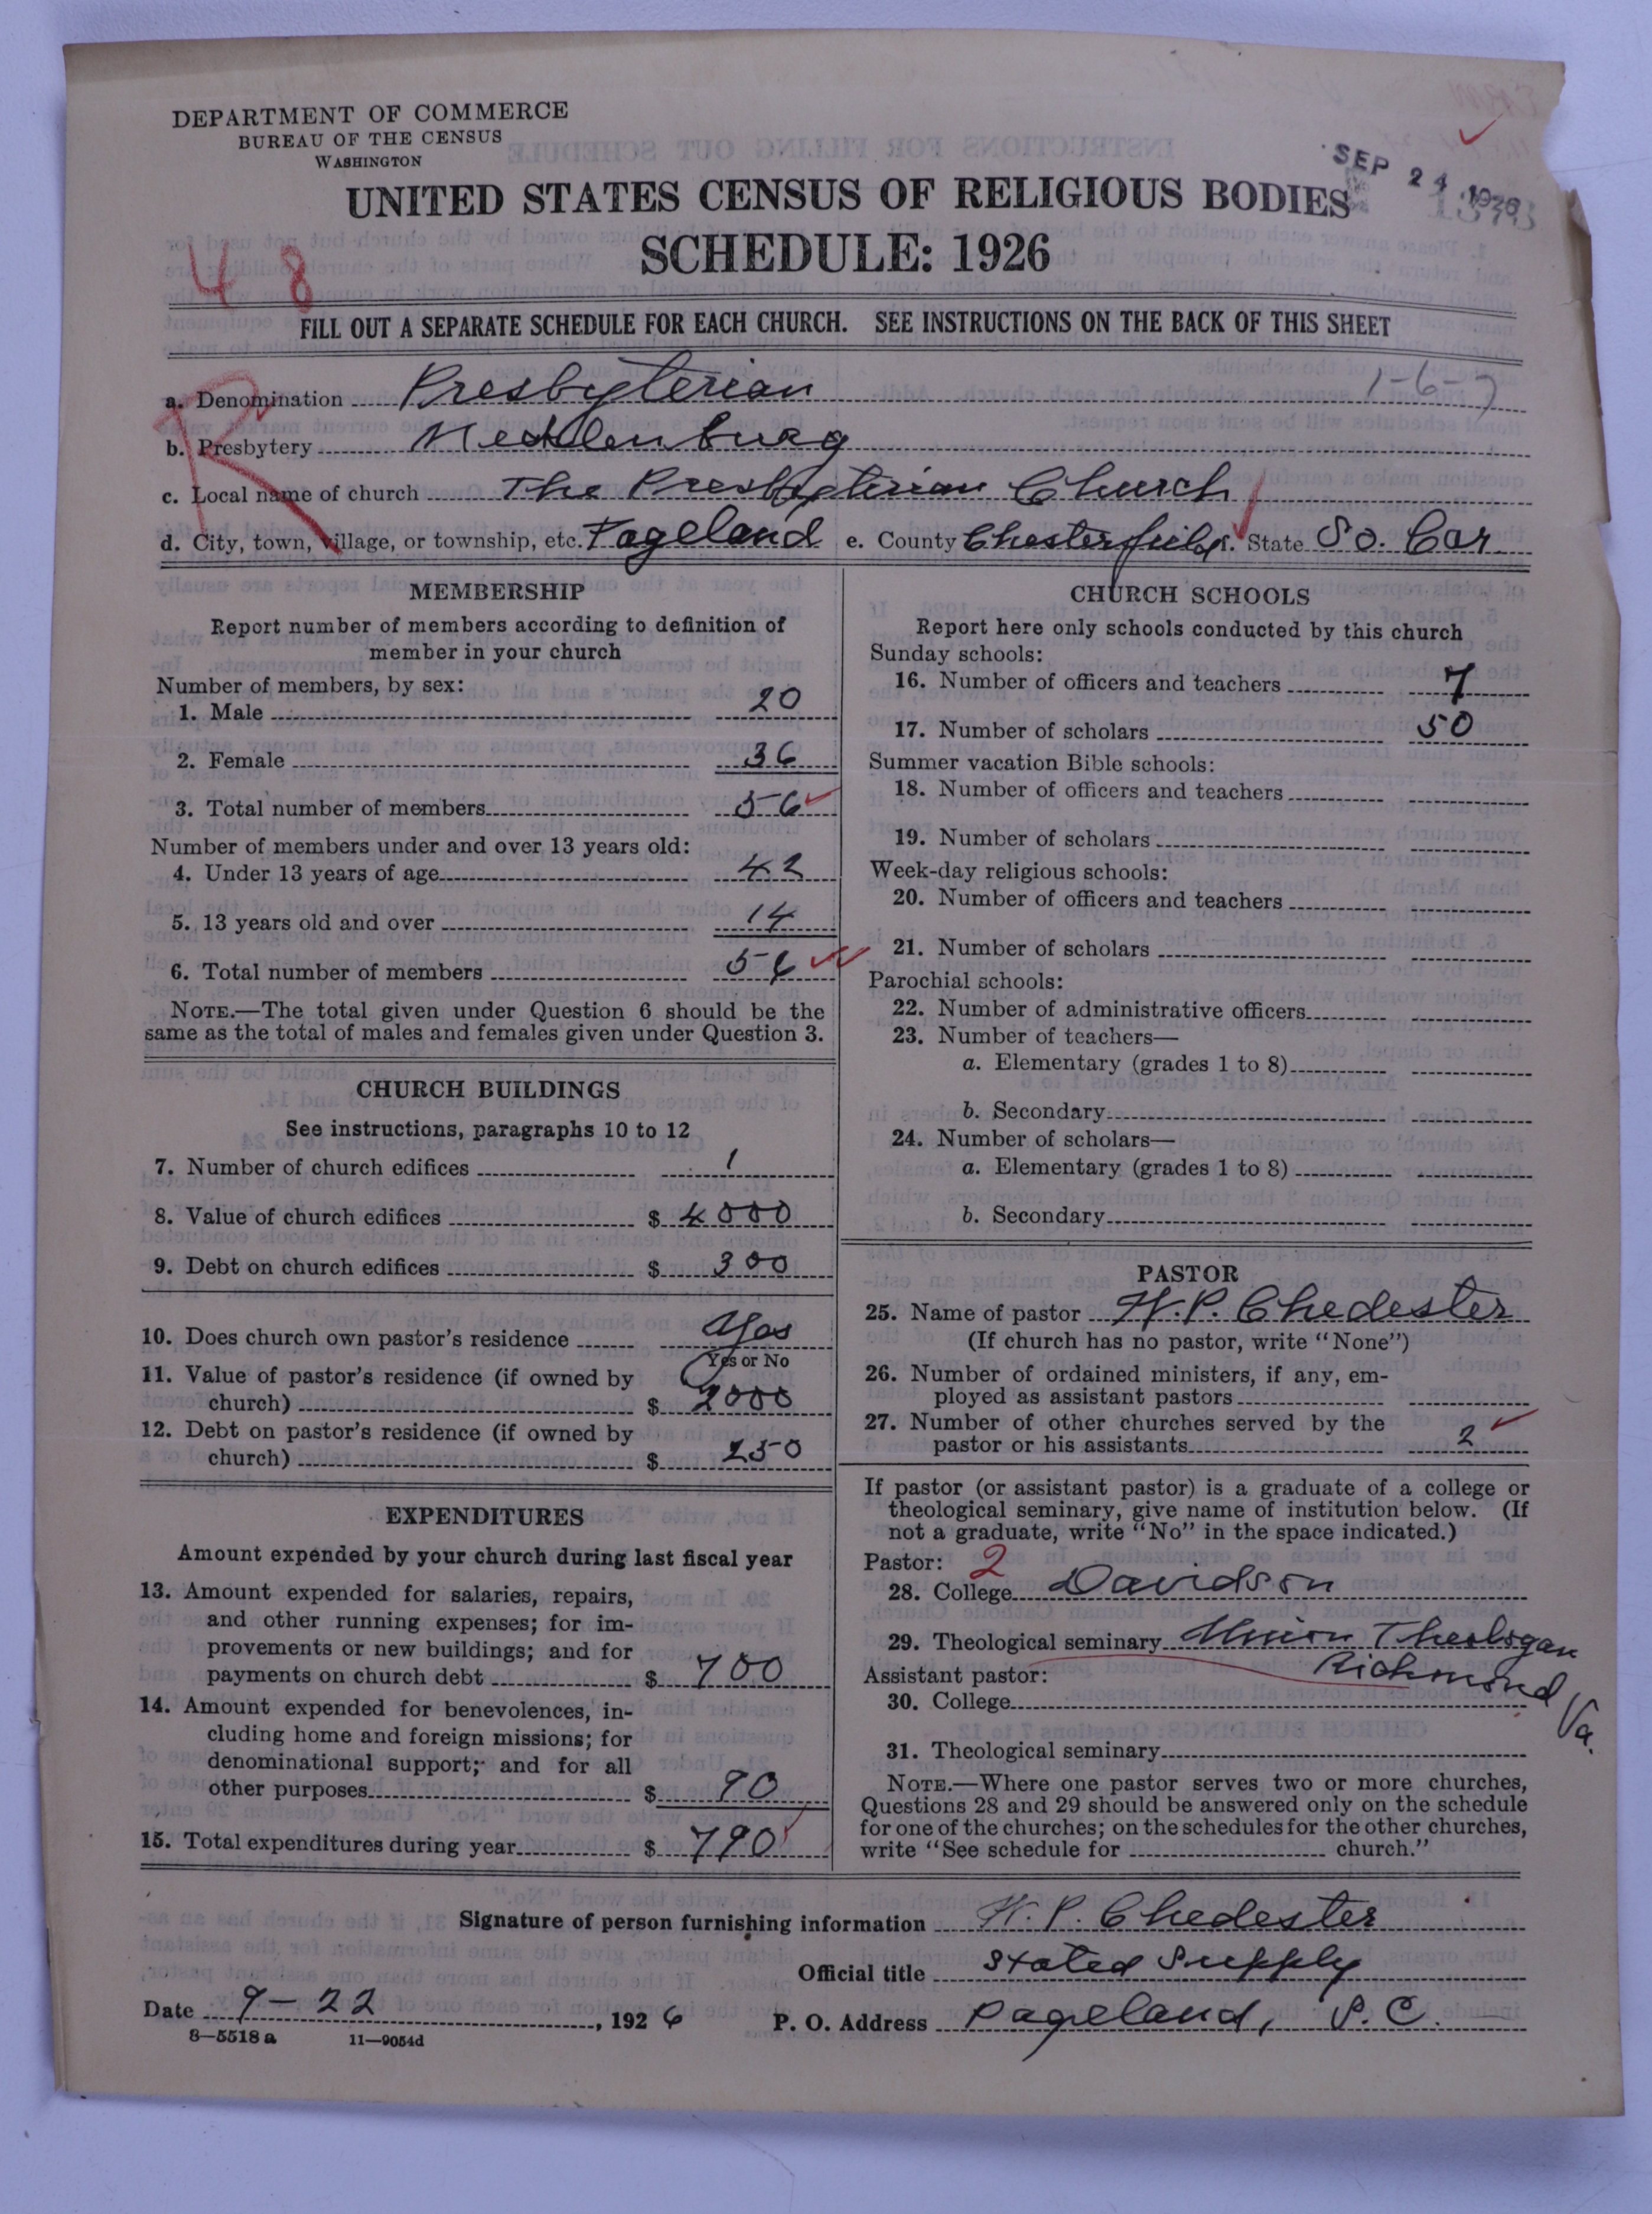 DEPARTMENT OF COMMERCE
BUREAU OF THE CENSUS
WASHINGTON
SEP 24 1926
UNITED STATES CENSUS OF RELIGIOUS BODIES
SCHEDULE: 1926
48
FILL OUT A SEPARATE SCHEDULE FOR EACH CHURCH. SEE INSTRUCTIONS ON THE BACK OF THIS SHEET
a. Denomination Presbyterian 1-6-7
b. Presbytery Mecklenburg
c. Local name of church The Presbyterian Church
d. City, town, village, or township, etc. Pageland e. County Chesterfield f. State So. Car
R
MEMBERSHIP
Report number of members according to definition of
member in your church
Number of members, by sex:
1. Male 20
2. Female 36
3. Total number of members 56
Number of members under and over 13 years old:
4. Under 13 years of age 42
5. 13 years old and over 14
6. Total number of members 56
NOTE.—The total given under Question 6 should be the
same as the total of males and females given under Question 3.
CHURCH BUILDINGS
See instructions, paragraphs 10 to 12
7. Number of church edifices 1
8. Value of church edifices $ 4000
9. Debt on church edifices $ 300
10. Does church own pastor's residence Yes
Yes or No
11. Value of pastor's residence (if owned by
church) $ 2000
12. Debt on pastor's residence (if owned by
church) $ 250
EXPENDITURES
Amount expended by your church during last fiscal year
13. Amount expended for salaries, repairs,
and other running expenses; for im-
provements or new buildings; and for
payments on church debt $ 700
14. Amount expended for benevolences, in-
cluding home and foreign missions; for
denominational support; and for all
other purposes $ 90
15. Total expenditures during year $ 790
CHURCH SCHOOLS
Report here only schools conducted by this church
Sunday schools:
16. Number of officers and teachers 7
17. Number of scholars 50
Summer vacation Bible schools:
18. Number of officers and teachers
19. Number of scholars
Week-day religious schools:
20. Number of officers and teachers
21. Number of scholars
Parochial schools:
22. Number of administrative officers
23. Number of teachers—
a. Elementary (grades 1 to 8)
b. Secondary
24. Number of scholars—
a. Elementary (grades 1 to 8)
b. Secondary
PASTOR
25. Name of pastor H.P. Chedester
(If church has no pastor, write "None")
26. Number of ordained ministers, if any, em-
ployed as assistant pastors
27. Number of other churches served by the
pastor or his assistants 2
If pastor (or assistant pastor) is a graduate of a college or
theological seminary, give name of institution below. (If
not a graduate, write "No" in the space indicated.)
Pastor: 2
28. College Davidson
29. Theological seminary Union
Richmond Va.
Assistant pastor:
30. College
31. Theological seminary
NOTE.—Where one pastor serves two or more churches,
Questions 28 and 29 should be answered only on the schedule
for one of the churches; on the schedules for the other churches,
write "See schedule for church."
Signature of person furnishing information H. P. Chedester
Official title Stated Supply
Date 9-22, 1926 P. O. Address Pageland, S. C.
8—5518a 11—9054d